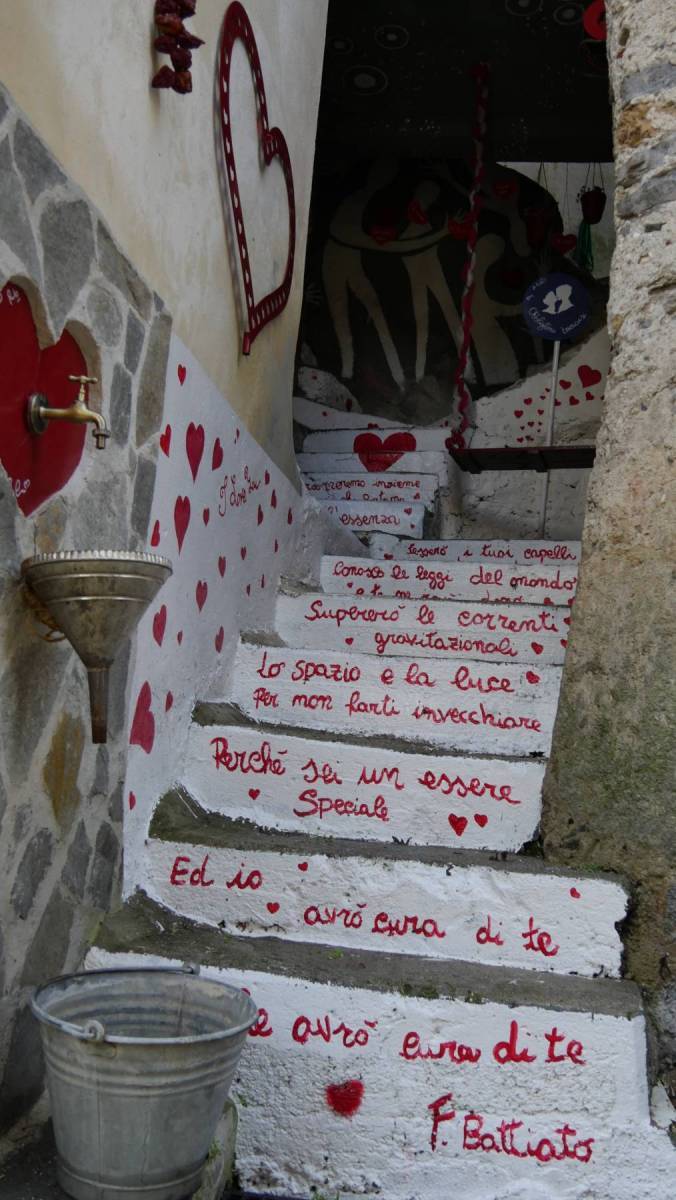 I Love You
insieme
essenza
Tesserò i tuoi capelli
Conosco le leggi del mondo
Supererò le correnti
gravitazionali
Lo spazio e la luce
Per non farti invecchiare
Perché sei un essere
Speciale
Ed io
avrò cura di te
avrò cura di te
F. Battiato